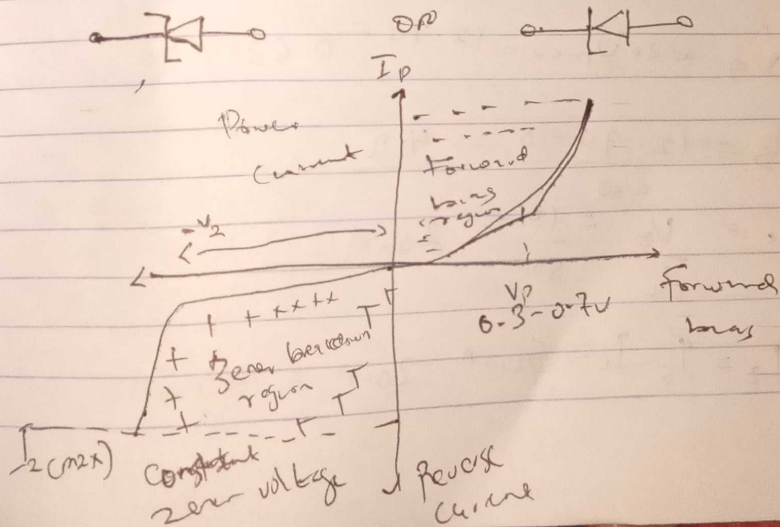 OR
I_D
Power
Current
Forward
bias
region
-V_Z
V_D
0.3-0.7V
Forward
bias
Zener breakdown
region
-I_Z(max)
Constant
zener voltage
Reverse
Current